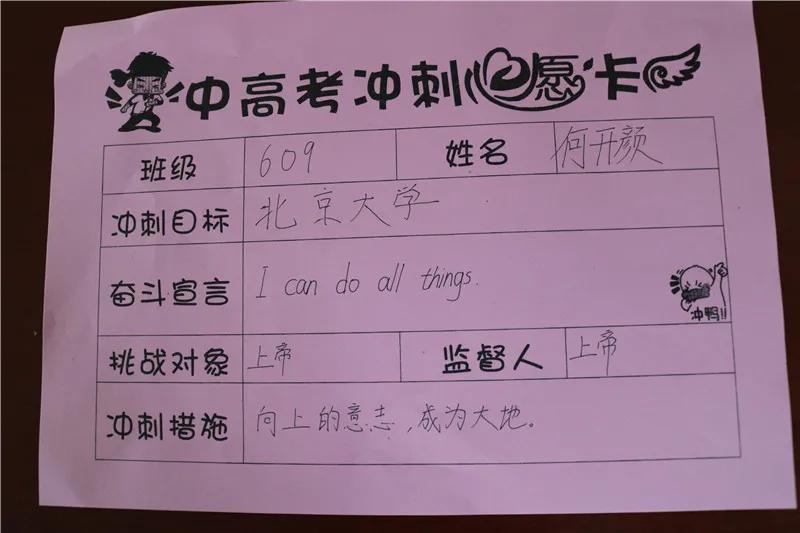 中高考冲刺心愿卡
班级 609 姓名 何开颜
冲刺目标 北京大学
奋斗宣言 I can do all things.
冲鸭!!
挑战对象 上帝 监督人 上帝
冲刺措施 向上的意志,成为大地。